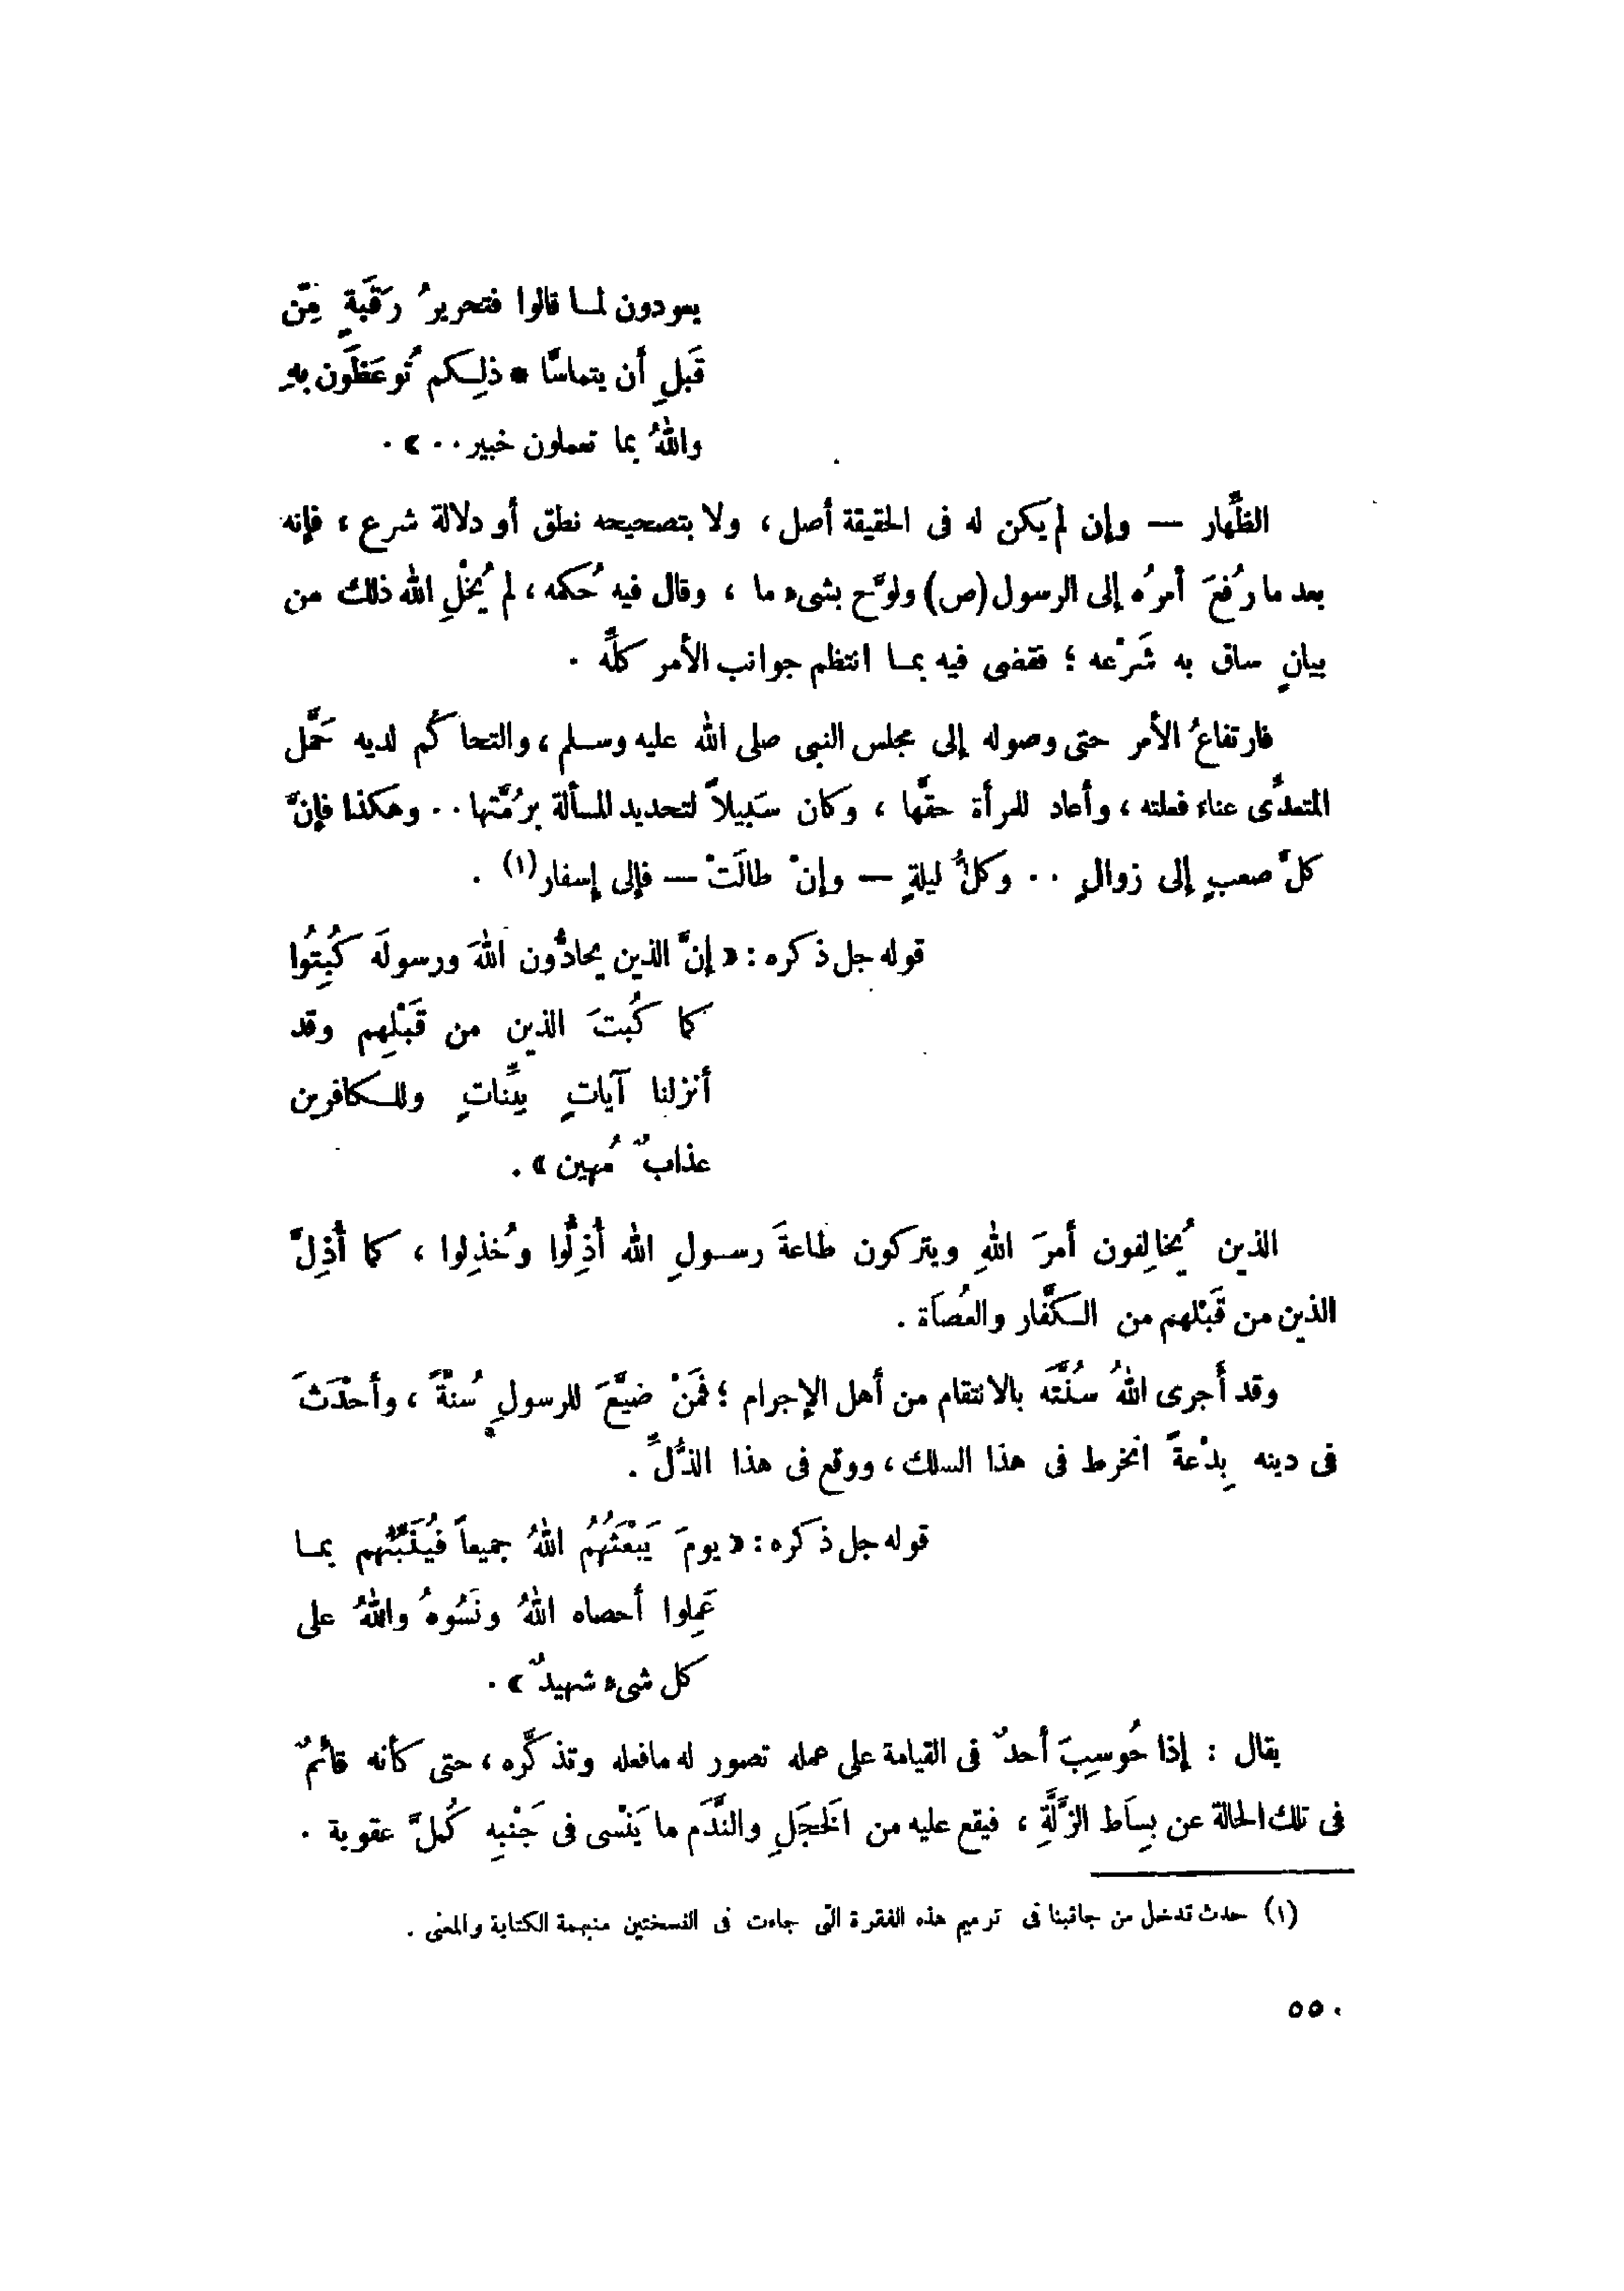 يعودون لما قالوا فتحريرُ رَقَبةٍ مِّن
قَبلِ أن يتماسَّا * ذلِكم تُوعَظُون بهِ
واللهُ بما تعملون خبير .. » .
الظِّهار — وإن لم يكن له فى الحقيقة أصل ، ولا بتصحيحه نطق أو دلالة شرع ، فإنه
بعد ما رُفعَ أمرُه إلى الرسول (ص) ولوَّح بشىء ما ، وقال فيه حُكمه ، لم يُخْلِ الله ذلك من
بيانٍ ساق به شَرْعه ؛ فقضى فيه بما انتظم جوانب الأمر كلِّه .
فارتفاعُ الأمر حتى وصوله إلى مجلس النبى صلى الله عليه وسلم ، والتحاكُم لديه حَمَّل
المتعدِّى عناء فعلته ، وأعاد للمرأة حقَّها ، وكان سَبيلاً لتحديد المسألة برُمَّتها .. وهكذا فإنَّ
كلَّ صعبٍ إلى زوالٍ .. وكلُّ ليلةٍ — وإنْ طالَتْ — فإلى إسفار (١) .
قوله جل ذكره : « إنَّ الذين يحادُّون اللهَ ورسولَه كُبِتُوا
كما كُبتَ الذين من قَبْلِهم وقد
أنزلنا آياتٍ بيِّناتٍ وللكافرين
عذابٌ مُهين » .
الذين يُخالِفون أمرَ اللهِ ويتركون طاعةَ رسولِ الله أُذِلُّوا وخُذِلوا ، كما أُذِلَّ
الذين من قَبْلهم من الكفَّار والعُصَاة .
وقد أجرى اللهُ سُنَّتَه بالانتقام من أهل الإجرام ؛ فمَنْ ضيَّعَ للرسولِ سُنةً ، وأحْدَثَ
فى دينه بِدْعةً انخرط فى هذا السلك ، ووقع فى هذا الذُّلِّ .
قوله جل ذكره : « يومَ يَبْعَثُهُمُ اللهُ جميعاً فيُنَبِّئهم بما
عَمِلوا أحصاه اللهُ ونَسُوهُ واللهُ على
كل شىء شهيدٌ » .
يقال : إذا حُوسِبَ أحدٌ فى القيامة على عمله تصور له مافعله وتذكَّره ، حتى كأنه قائمٌ
فى تلك الحالة عن بِسَاط الزَّلَّةِ ، فيقع عليه من الخَجَلِ والنَّدَم ما يَنْسى فى جَنْبِه كُلَّ عقوبة .
(١) حدث تدخل من جانبنا فى ترميم هذه الفقرة التى جاءت فى النسختين منبهمة الكتابة والمعنى .
٥٥٠